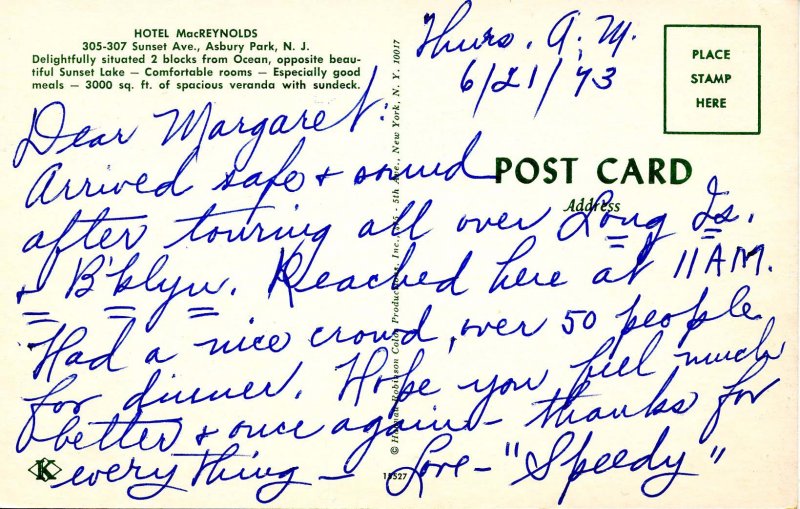 HOTEL MacREYNOLDS
305-307 Sunset Ave., Asbury Park, N. J.
Delightfully situated 2 blocks from Ocean, opposite beau-
tiful Sunset Lake — Comfortable rooms — Especially good
meals — 3000 sq. ft. of spacious veranda with sundeck.
Thurs. A.M.
6/21/73
PLACE
STAMP
HERE
POST CARD
Address
Dear Margaret:
Arrived safe + sound
after touring all over Long Is.
+ B'klyn. Reached here at 11 AM.
Had a nice crowd, over 50 people
for dinner. Hope you feel much
better + once again - thanks for
everything — Love - "Speedy"
K
18527
Color Productions, Inc., 5th Ave., New York, N. Y. 10017